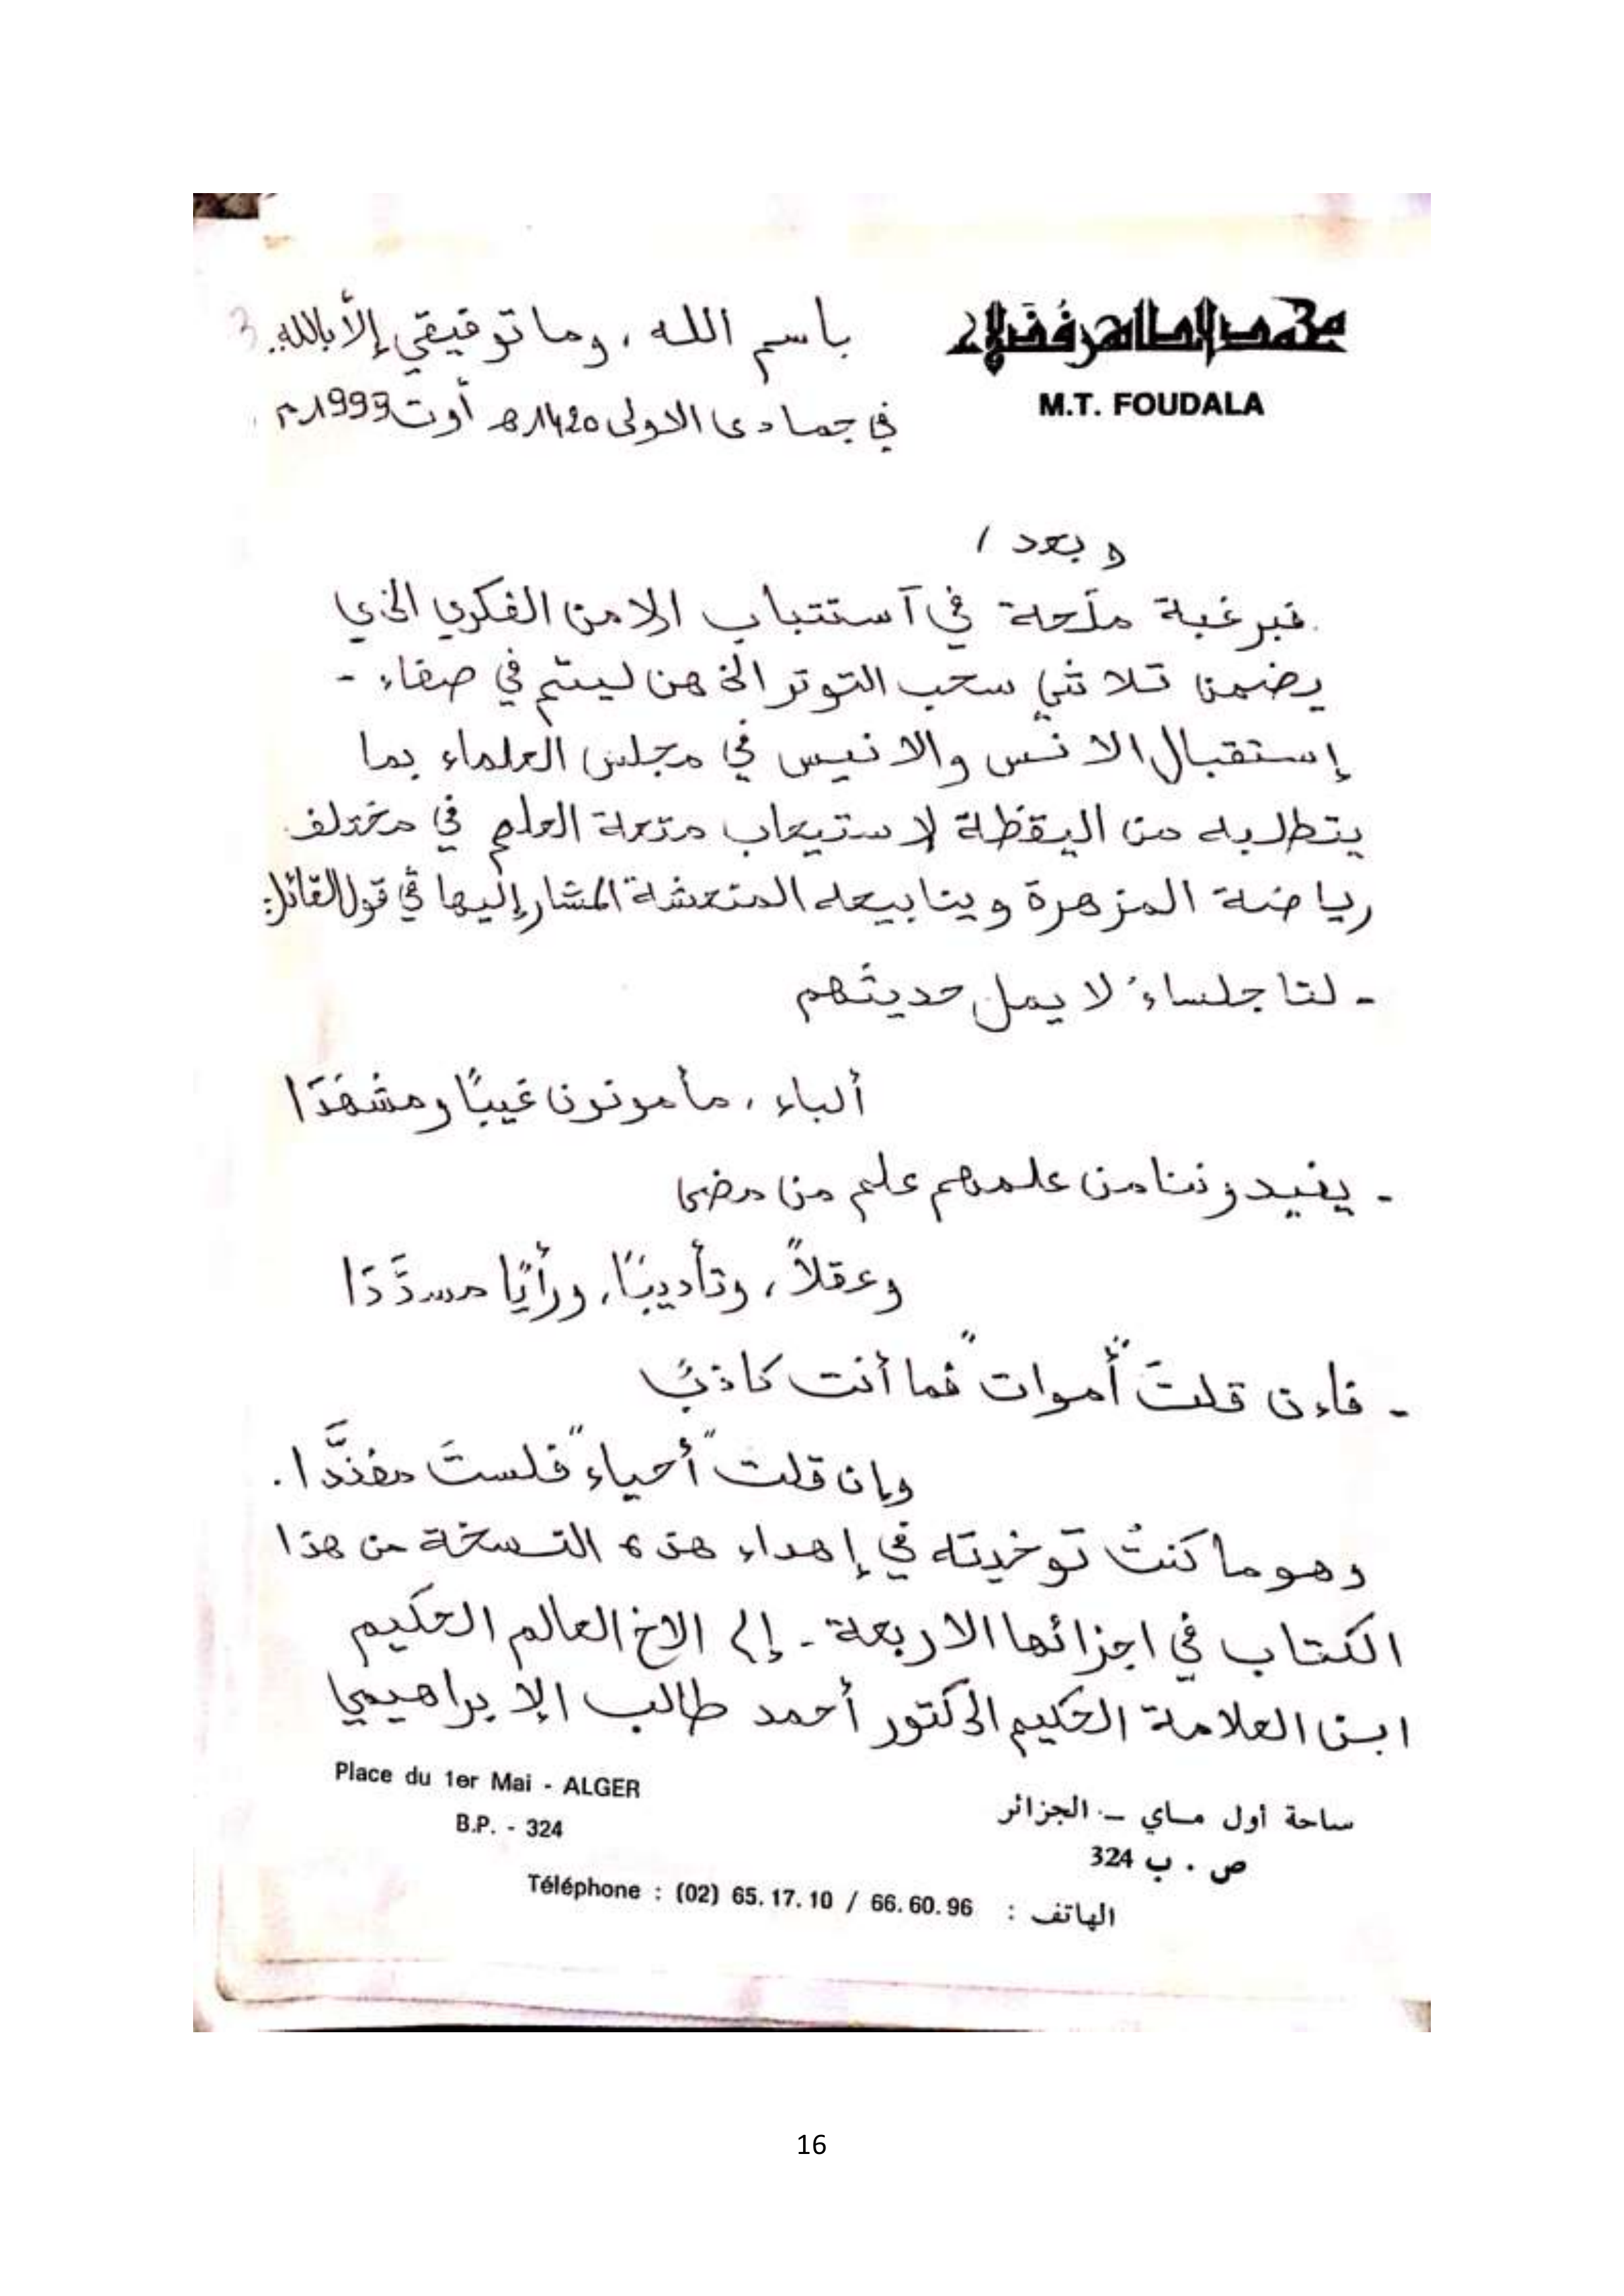 محمد الطاهر فضلاء
M.T. FOUDALA
باسم الله، وما توفيقي إلاّ بالله. 3
في جمادى الاولى 1420هـ أوت 1999م
وبعد /
فبرغبة ملَحة في آستتباب الامن الفكري الذي
يضمن تلاشي سحب التوتر الذهن ليتم في صفاء -
إستقبال الانس والانيس في مجلس العلماء بما
يتطلبه من اليقظة لاستيعاب متعة العلم في مختلف
رياضة المزهرة وينابيعه المنعشة المشار إليها في قول القائل:
- لنا جلساءُ لا يمل حديثَهم
ألباء، مأمونون غيبًا ومشهَدَا
- يفيدوننا من علمهم علم من مضى
وعقلاً، وتأديبًا، ورأيًا مسدَّدَا
- فاءن قلتَ "أموات" فما أنت كاذبً
وإن قلت "أحياء" فلستَ مفنَّدا.
وهو ما كنتُ توخيته في إهداء هذه النسخة من هذا
الكتاب في اجزائها الاربعة - إلى الاخ العالم الحكيم
ابن العلامة الحكيم الدكتور أحمد طالب الإبراهيمي
Place du 1er Mai - ALGER
B.P. - 324
ساحة أول ماي – الجزائر
ص . ب 324
Téléphone : (02) 65.17.10 / 66.60.96 : الهاتف
16